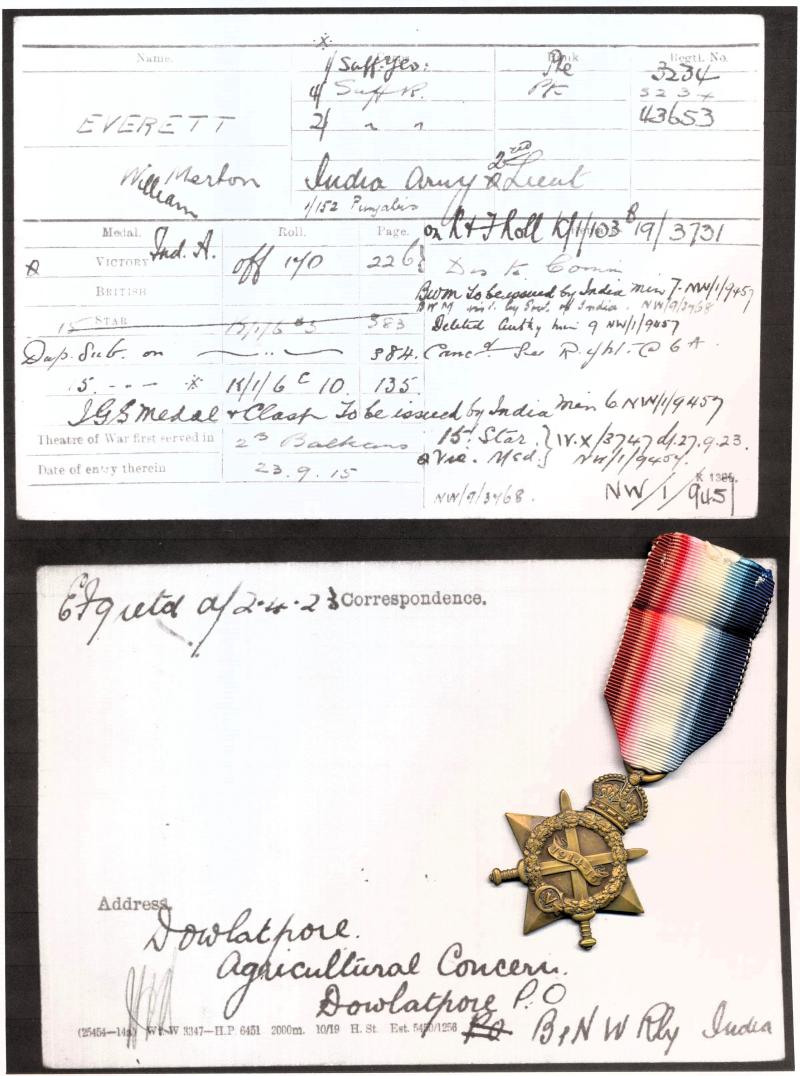 Name. Corps. Rank Regtl. No.
1/ Suff. Yeo: Pte 3234
4/ Suff R. Pte 3234
EVERETT 2/ " " 43653
William Merton India Army 2nd Lieut
1/152 Punjabis
Medal. Roll. Page.
on R & F Roll K/1/103 B 19/3731
VICTORY Ind. A. Off 170 226
Dis to Comm
BRITISH
BWM To be issued by India min 7. NW/1/9457
NW/9/3768
STAR 383
Deleted Authy min 9 NW/1/9457
Dup. Sub. on 384. Canc
15 K/1/6 C 10 135
IGS Medal & Clasp To be issued by India min 6 NW/1/9457
Theatre of War first served in 2B Balkans
15 Star. } IV. X/3747 d/27.9.23.
Date of entry therein 23.9.15
& Vic. Med. } NW/1/9457.
K 1380.
NW/9/3768. NW/1/945
d/2.4.23 Correspondence.
1914-15
Address.
Dowlatpore.
Agricultural Concern.
Dowlatpore P.O
(25454—14a) Wt. W 3347—H.P. 6451 2000m. 10/19 H. St. Est. 5450/1256
B & N W Rly India